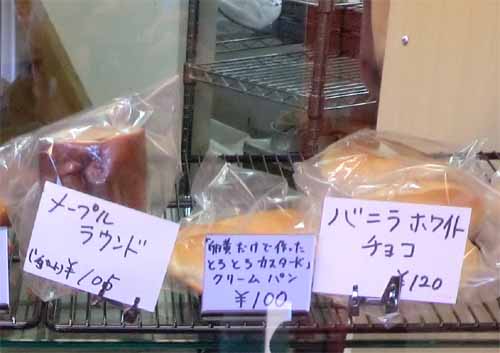 メープル
ラウンド
¥105
「卵黄だけで作った
とろとろカスタード」
クリームパン
¥100
バニラホワイト
チョコ
¥120